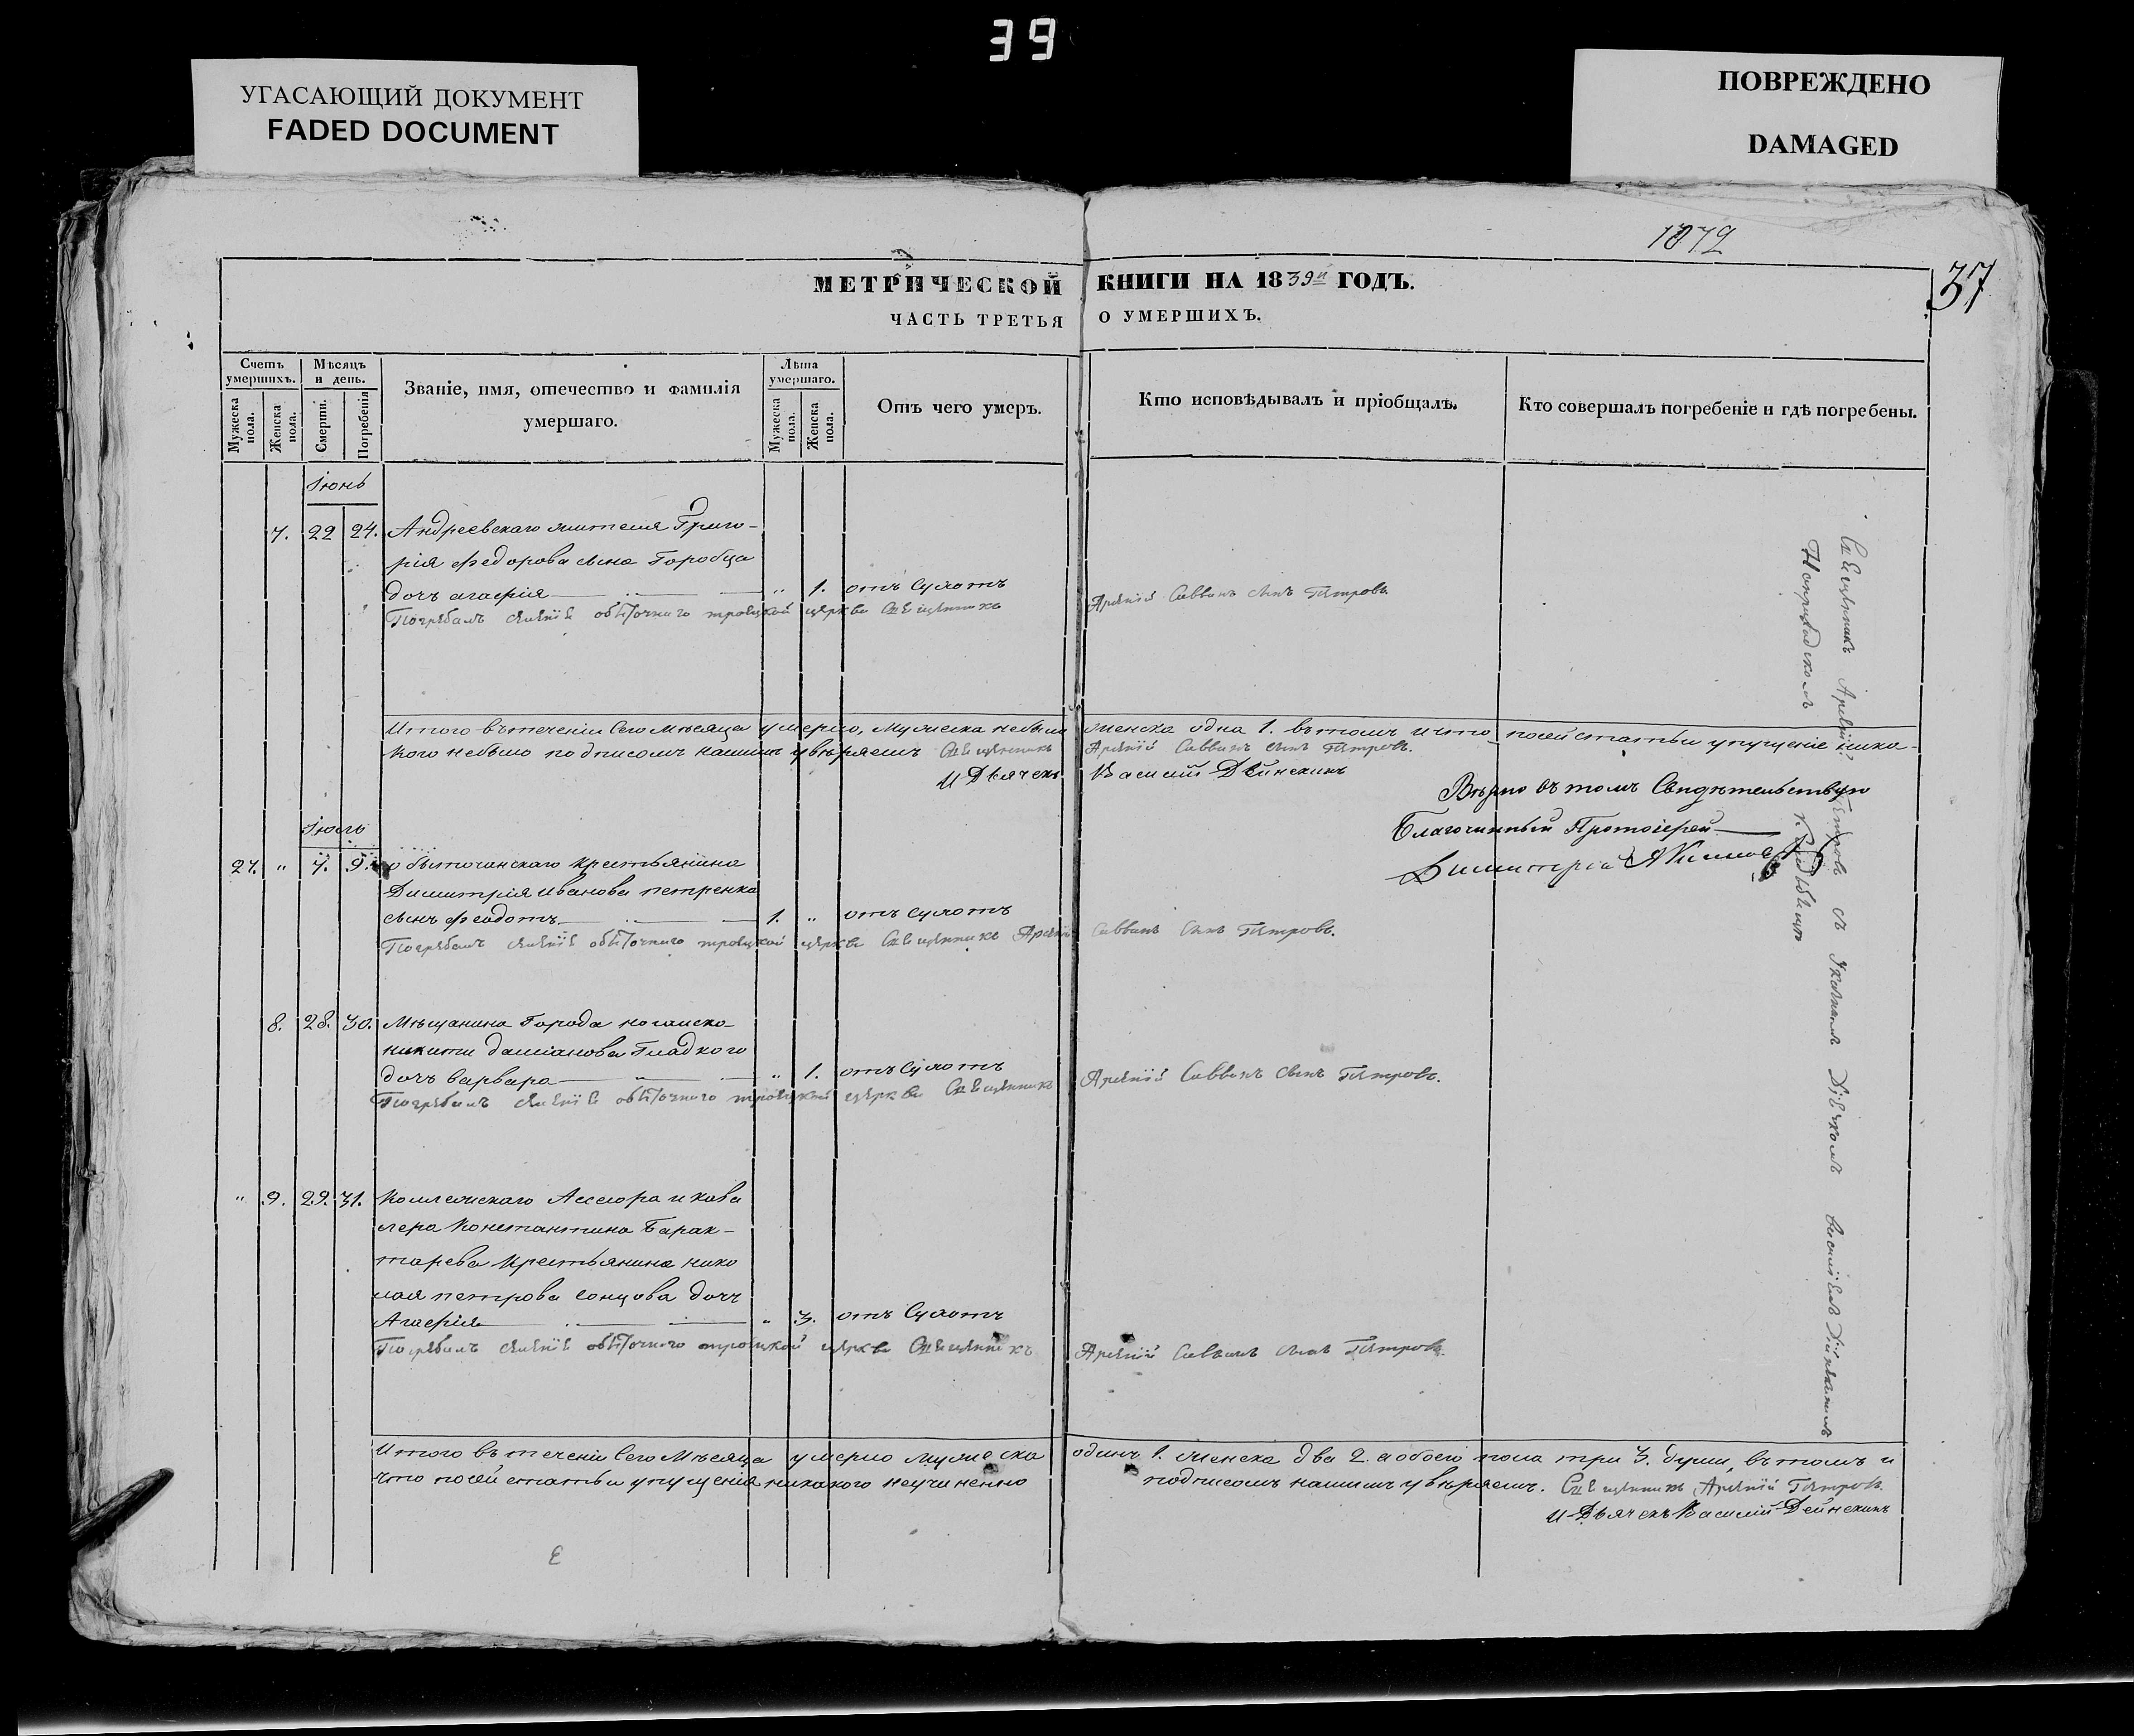 39
УГАСАЮЩИЙ ДОКУМЕНТ
FADED DOCUMENT
ПОВРЕЖДЕНО
DAMAGED
1072
37
МЕТРИЧЕСКОЙ КНИГИ НА 1839й ГОДЪ.
ЧАСТЬ ТРЕТЬЯ О УМЕРШИХЪ.
Счетъ умершихъ.
Мѣсяцъ и день.
Званіе, имя, отечество и фамилія умершаго.
Лѣта умершаго.
Отъ чего умеръ.
Кто исповѣдывалъ и пріобщалъ.
Кто совершалъ погребеніе и гдѣ погребены.
Мужеска пола.
Женска пола.
Смерти.
Погребенія
Мужеска пола.
Женска пола.
Іюнь
7. 22 24. Андреевскаго жителя Григо-
рія Федорова сына Горобца
дочь агафія „ 1. отъ Сухотъ
Погребалъ троицкой церкви Священникъ Арсеній Саввинъ сынъ Петровъ
Итого въ теченіи Сего Мѣсяца умерло, Мужеска небыло женска одна 1. въ томъ и что посей статьи упущеніе ника-
кого небыло подписомъ нашимъ увѣряемъ Священникъ Арсеній Саввинъ сынъ Петровъ.
И Дьячекъ Василій Дейнекинъ
Вѣрно въ томъ Свидѣтельствую
Благочинный Протоіерей
Димитрій
Іюль
27. „ 7. 9. обыточанскаго крестьянина
Димитрія иванова петренка
сынъ феодотъ 1. „ отъ сухотъ
Погребалъ троицкой церкви Священникъ Арсеній Саввинъ сынъ Петровъ.
8. 28. 30. Мѣщанина Города ногайска
никити даміанова Гладкого
дочь варвара „ 1. отъ Сухотъ
Погребалъ троицкой церкви Священникъ Арсеній Саввинъ сынъ Петровъ.
„ 9. 29. 31. Коллежскаго Ассесора и кава
лера Константина Барак-
тарева крестьянина нико
лая петрова сонцова дочь
Агафія „ 3. отъ Сухотъ
Погребалъ троицкой церкви Священникъ Арсеній Саввинъ сынъ Петровъ.
Итого въ теченіи Сего Мѣсяца умерло мужеска одинъ 1. женска два 2. а обоего пола три 3. души, въ томъ и
что посей статьи упущенія никакого неучиненно подписомъ нашимъ увѣряемъ. Священникъ Арсеній Петровъ
И Дьячекъ Василій Дейнекинъ
Священникъ Арсеній Петровъ съ Дьячкомъ